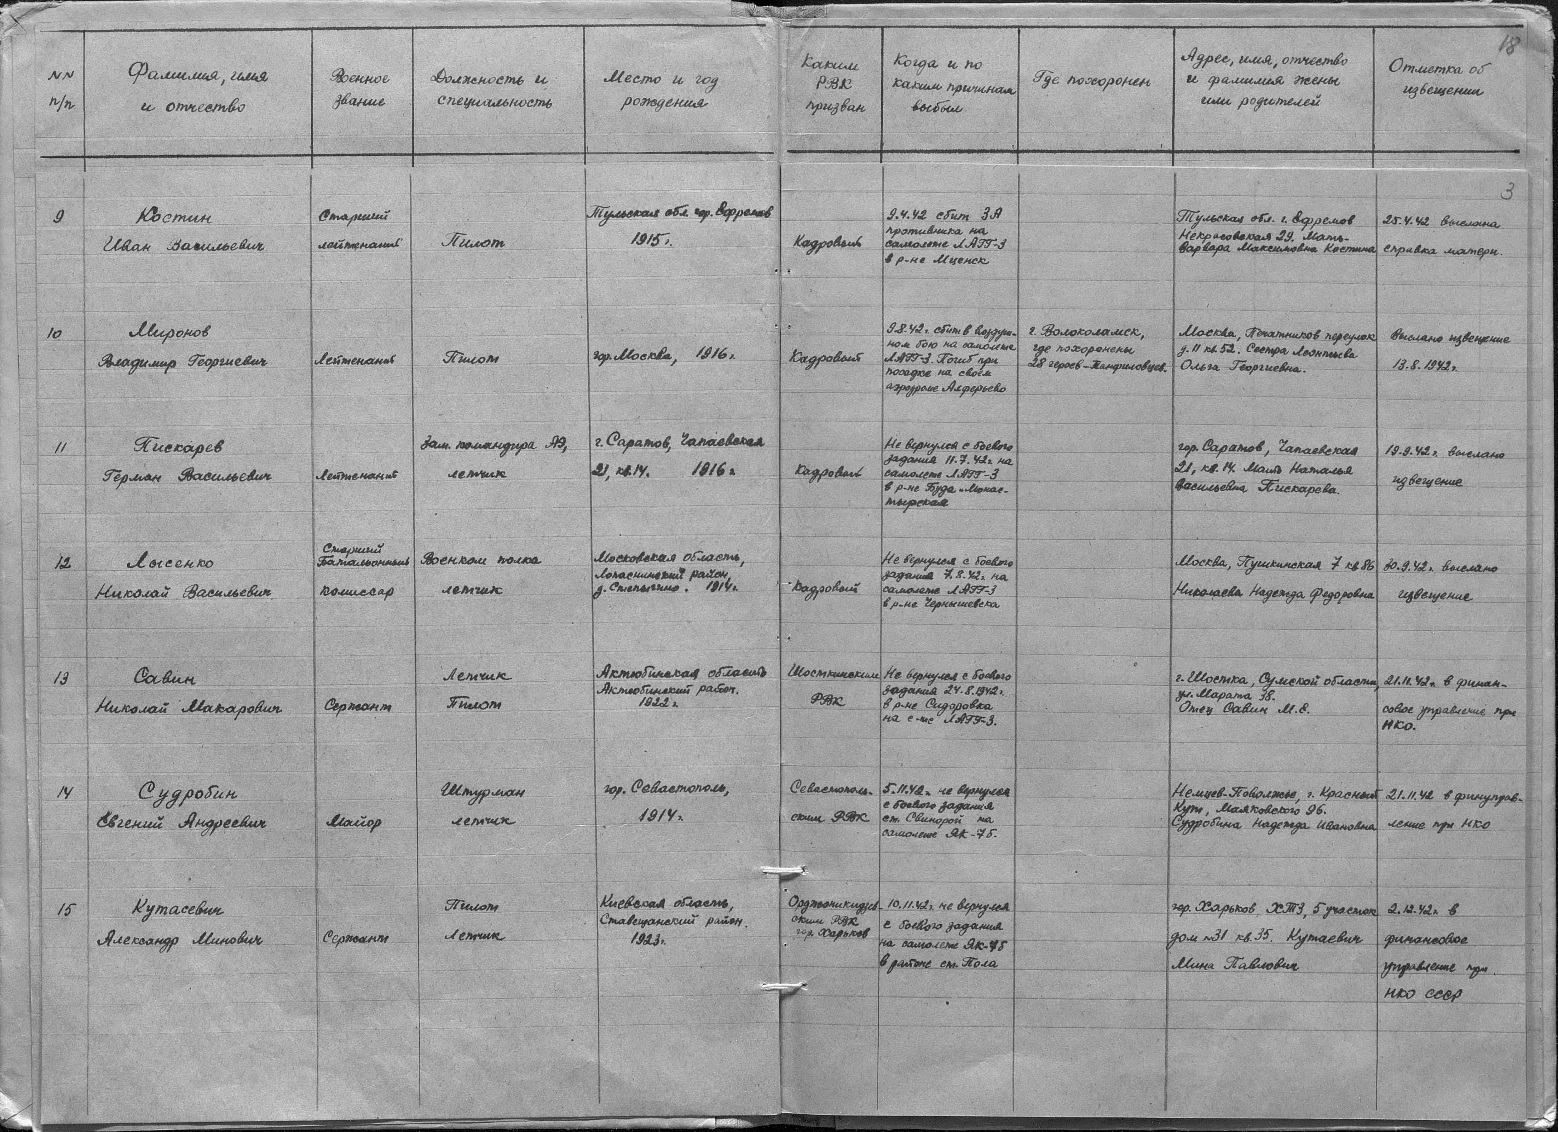 18
NN
п/п
Фамилия, имя
и отчество
Военное
звание
Должность и
специальность
Место и год
рождения
Каким
РВК
призван
Когда и по
каким причинам
выбыл
Где похоронен
Адрес, имя, отчество
и фамилия жены
или родителей
Отметка об
извещении
3
9
Костин
Иван Васильевич
Старший
лейтенант
Пилот
Тульская обл. гор. Ефремов
1915г.
Кадровый
9.4.42 сбит ЗА
противника на
самолете ЛАГГ-3
в р-не Мценск
Тульская обл. г. Ефремов
Некрасовская 29. Мать-
Варвара Максимовна Костина
25.4.42 выслана
справка матери.
10
Миронов
Владимир Георгиевич
Лейтенант
Пилот
гор. Москва, 1916г.
Кадровый
9.8.42г. сбит в воздуш-
ном бою на самолете
ЛАГГ-3. Погиб при
посадке на своем
аэродроме Алферьево
г. Волоколамск,
где похоронены
28 героев-Панфиловцев.
Москва, Печатников переулок
д. 11 кв. 52. Сестра Леонтьева
Ольга Георгиевна.
Выслано извещение
13.8.1942г.
11
Пискарев
Герман Васильевич
Лейтенант
Зам. командира АЭ,
летчик
г. Саратов, Чапаевская
21, кв. 14. 1916г.
Кадровый
Не вернулся с боевого
задания 11.7.42г. на
самолете ЛАГГ-3
в р-не Буда Монас-
тырская
гор. Саратов, Чапаевская
21, кв. 14. Мать Наталья
Васильевна Пискарева.
19.9.42г. выслано
извещение
12
Лысенко
Николай Васильевич
Старший
Батальонный
комиссар
Военком полка
летчик
Московская область,
Лопаснинский район
д. Степыгино. 1914г.
Кадровый
Не вернулся с боевого
задания 7.8.42г. на
самолете ЛАГГ-3
в р-не Чернышевка
Москва, Пушкинская 7 кв 86
Николаева Надежда Федоровна
30.9.42г. выслано
извещение
13
Савин
Николай Макарович
Сержант
Летчик
Пилот
Актюбинская область
Актюбинский район.
1922г.
Шосткинским
РВК
Не вернулся с боевого
задания 24.8.1942г.
в р-не Сидоровка
на с-те ЛАГГ-3.
г. Шостка, Сумской области,
ул. Марата 38.
Отец Савин М.Е.
21.11.42г. в финан-
совое управление при
НКО.
14
Судробин
Евгений Андреевич
Майор
Штурман
летчик
гор. Севастополь,
1914г.
Севастополь-
ским РВК
5.11.42г. не вернулся
с боевого задания
ст. Свинорой на
самолете ЯК-7б.
Немцев-Поволжье, г. Красный
Кут, Маяковского 96.
Судробина Надежда Ивановна
21.11.42 в финуправ-
ление при НКО
15
Кутасевич
Александр Минович
Сержант
Пилот
Летчик
Киевская область,
Ставещанский район.
1923г.
Орджоникидзев-
ским РВК
гор. Харьков
10.11.42г. не вернулся
с боевого задания
на самолете Як-7б
в районе ст. Пола
гор. Харьков, ХТЗ, 5 участок
дом №31 кв. 35. Кутаевич
Мина Павлович
2.12.42г. в
финансовое
управление при
НКО СССР